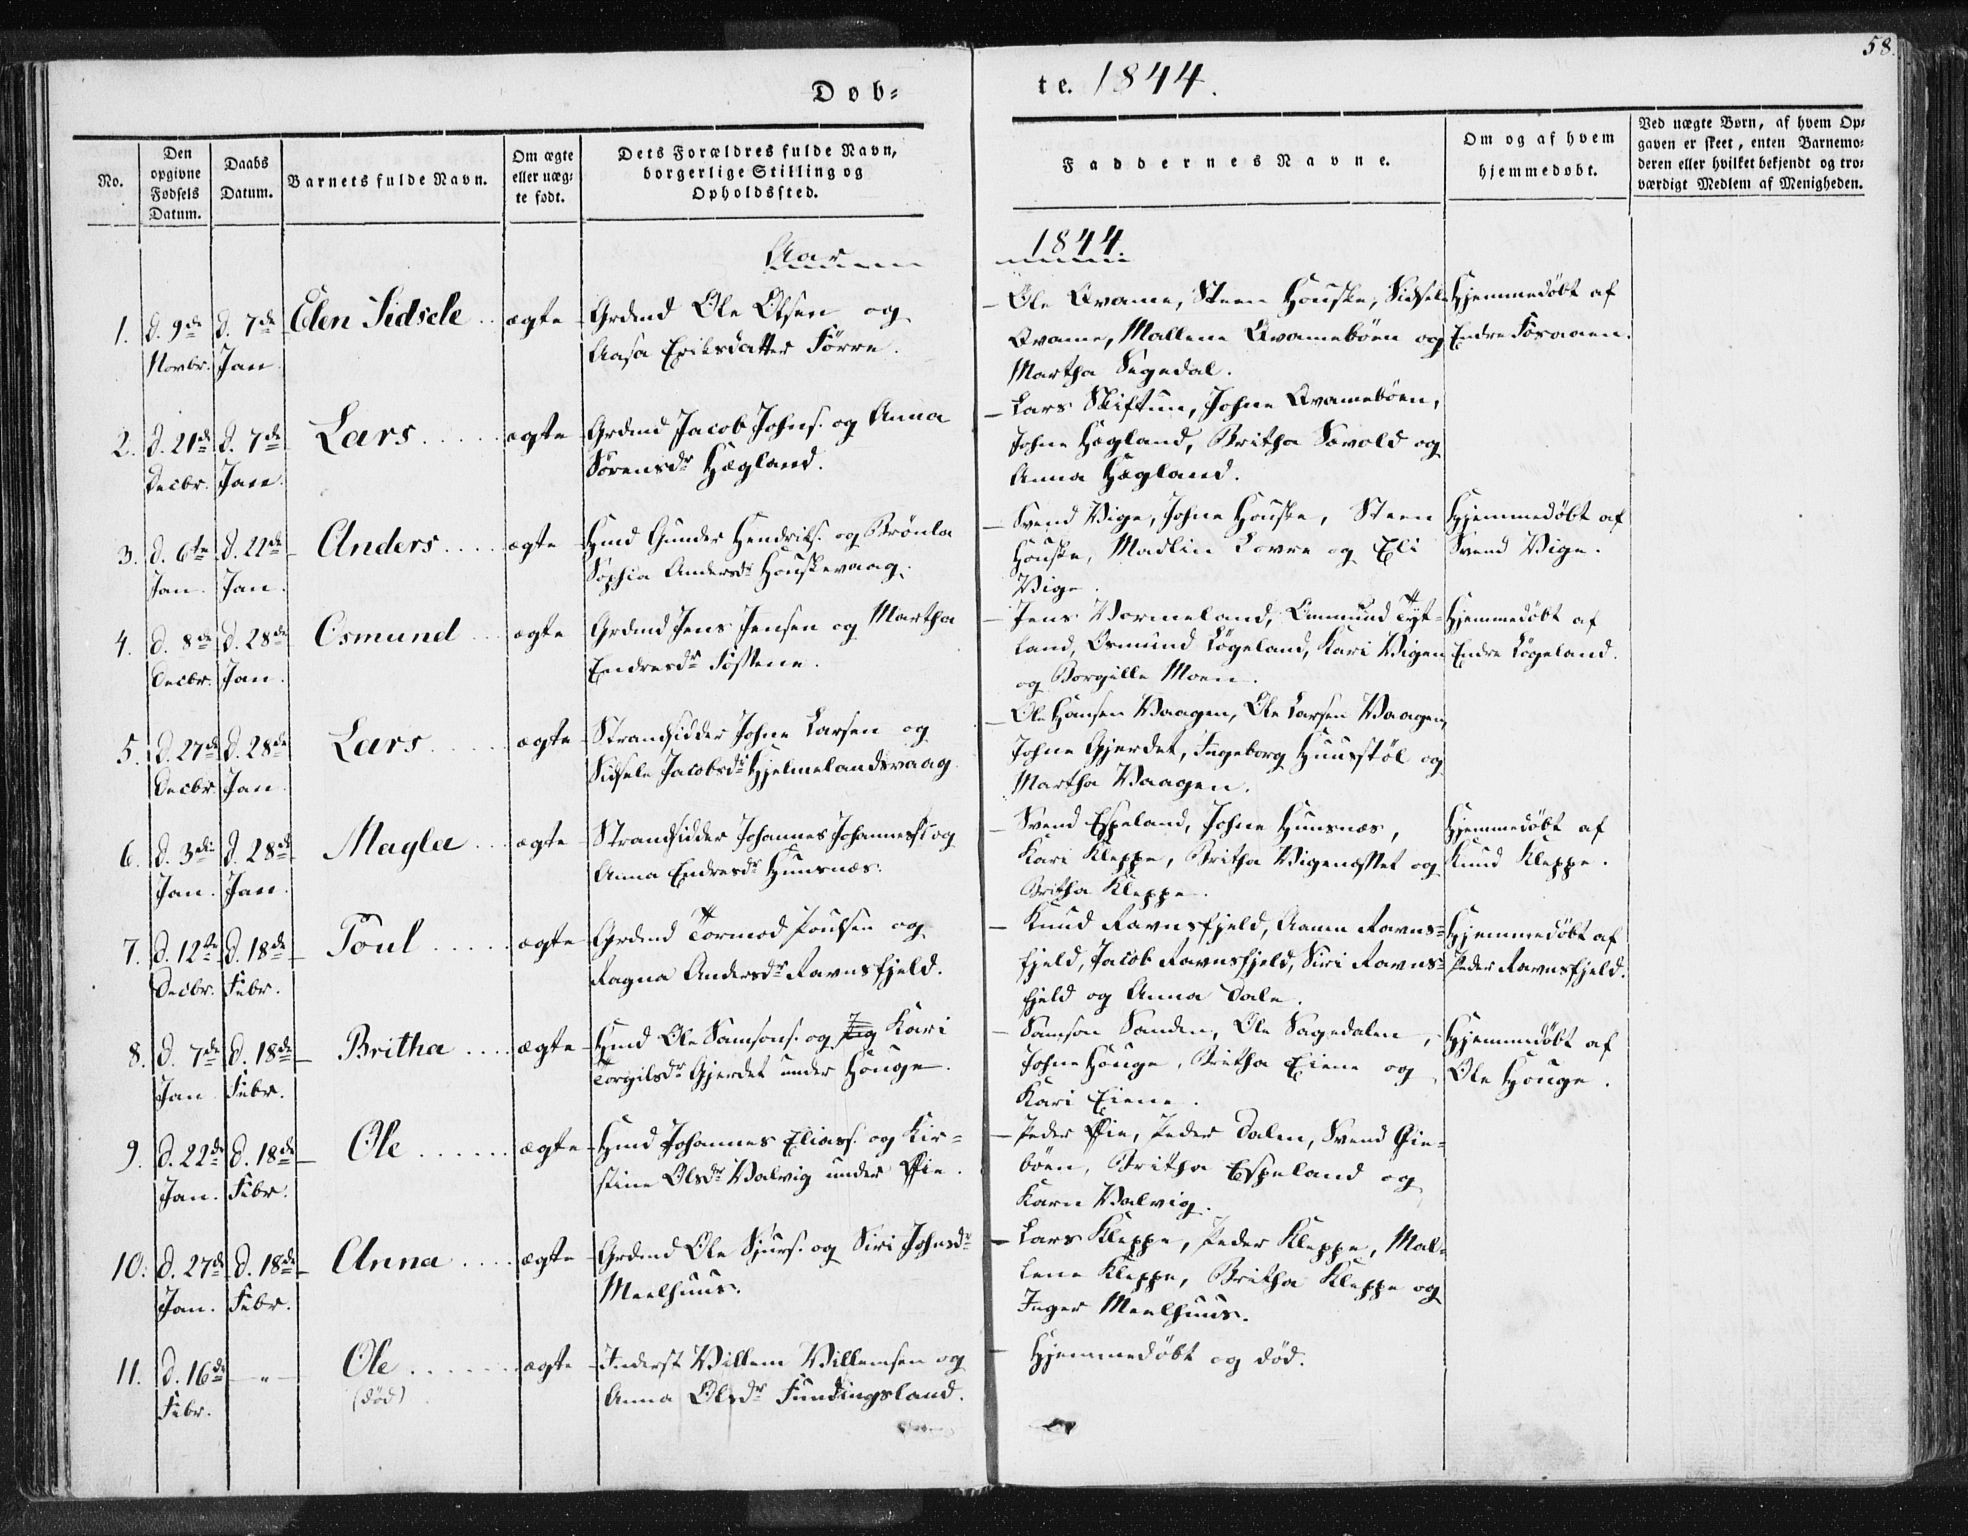 58.
Døb=
te. 1844.
No.
Den opgivne Fødsels Datum.
Daabs Datum.
Barnets fulde Navn.
Om ægte eller uæg= te født.
Dets Forældres fulde Navn, borgerlige Stilling og Opholdssted.
Faddernes Navne.
Om og af hvem hjemmedøbt.
Ved uægte Børn, af hvem Op= gaven er skeet, enten Barnemo= deren eller hvilket bekjendt og tro= værdigt Medlem af Menigheden.
Aar 1844.
1. d. 9de Novbr. d. 7de Jan. Elen Sidsele .. ægte
Grdmd Ole Olsen og
Aasa Eriksdatter Førre.
Ole Qvame, Steen Houske, Sidsele
Qvame, Mallene Qvamebøen og
Martha Segedal.
Hjemmedøbt af
Endre Fosaaen.
2. d. 21de Decbr. d. 7de Jan. Lars ..... ægte
Grdmd Jacob Johns. og Anna
Sørensdr Hægland.
Lars Skiftun, Johne Qvamebøen,
Johne Hægland, Britha Sævold og
Anna Hægland.
3. d. 6te Jan. d. 22de Jan. Anders .... ægte
Hmd Gunder Hendriks. og Brønla
Sophia Andersdr Houskevaag.
Svend Vige, Johne Houske, Steen
Houske, Madlin Lovre og Eli
Vige.
Hjemmedøbt af
Svend Vige.
4. d. 8de Decbr. d. 28de Jan. Osmund ... ægte
Grdmd Jens Jensen og Martha
Endresdr Fosstene.
Jens Vormeland, Ommund Tyt=
land, Osmund Løgeland, Kari Vigen
og Borgille Moen.
Hjemmedøbt af
Endre Løgeland.
5. d. 27de Decbr. d. 28de Jan. Lars ..... ægte
Strandsidder Johne Larsen og
Sidsele Jacobsdr Hjelmelandsvaag.
Ole Hansen Vaagen, Ole Larsen Vaagen,
Johne Gjerdet, Ingeborg Huusstøl og
Martha Vaagen.
6. d. 3die Jan. d. 28de Jan. Magla ... ægte
Strandsidder Johannes Johannes. og
Anna Endresdr Hunsnæs.
Svend Espeland, Johne Hunsnæs,
Kari Kleppe, Britha Vigenæsset og
Britha Kleppe.
Hjemmedøbt af
Knud Kleppe.
7. d. 12te Decbr. d. 18de Febr. Poul ..... ægte
Grdmd Tormod Poulsen og
Ragna Andersdr Ravnsfjeld.
Knud Ravnsfjeld, Aamen Ravns=
fjeld, Jacob Ravnsfjeld, Siri Ravns=
fjeld og Anna Dale.
Hjemmedøbt af
Peder Ravnsfjeld.
8. d. 7de Jan. d. 18de Febr. Britha .... ægte
Hmd Ole Samsons. og Kari
Torgilsdr Gjerdet under Houge.
Samson Sanden, Ole Sagedalen,
Johne Houge, Britha Eiene og
Kari Eiene.
Hjemmedøbt af
Ole Houge.
9. d. 22de Jan. d. 18de Febr. Ole ...... ægte
Hmd Johannes Elias. og Kir=
stine Olsdr Valvig under Øie.
Peder Øie, Peder Dalen, Svend Øie=
bøen, Britha Espeland og
Karn Valvig.
10. d. 27de Jan. d. 18de Febr. Anna .... ægte
Grdmd Ole Sjurs. og Siri Johnsdr
Meelhuus.
Lars Kleppe, Peder Kleppe, Mal=
lene Kleppe, Britha Kleppe og
Inger Meelhuus.
11. d. 16de Febr. — " — Ole ...... ægte
(død)
Inderst Villem Villemsen og
Anna Olsdr Fundingsland.
Hjemmedøbt og død.